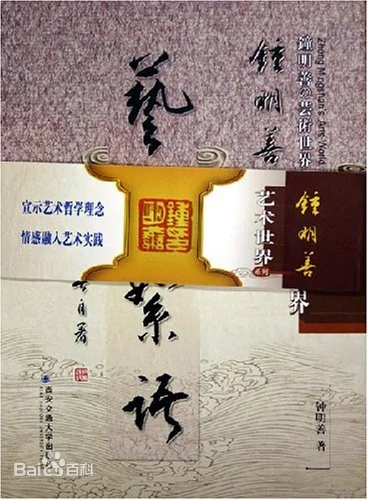 Zhong Mingshan's Art World
鐘明善の芸術世界
鍾明善
藝
語
宣示艺术哲学理念
情感融入艺术实践
艺术世界
系列
鍾明善
界
自署
钟明善 著
西安交通大学出版
Bai百科